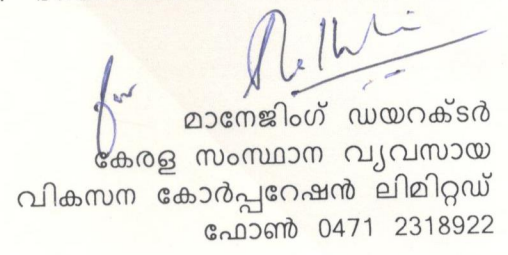 for
മാനേജിംഗ് ഡയറക്ടർ
കേരള സംസ്ഥാന വ്യവസായ
വികസന കോർപ്പറേഷൻ ലിമിറ്റഡ്
ഫോൺ 0471 2318922